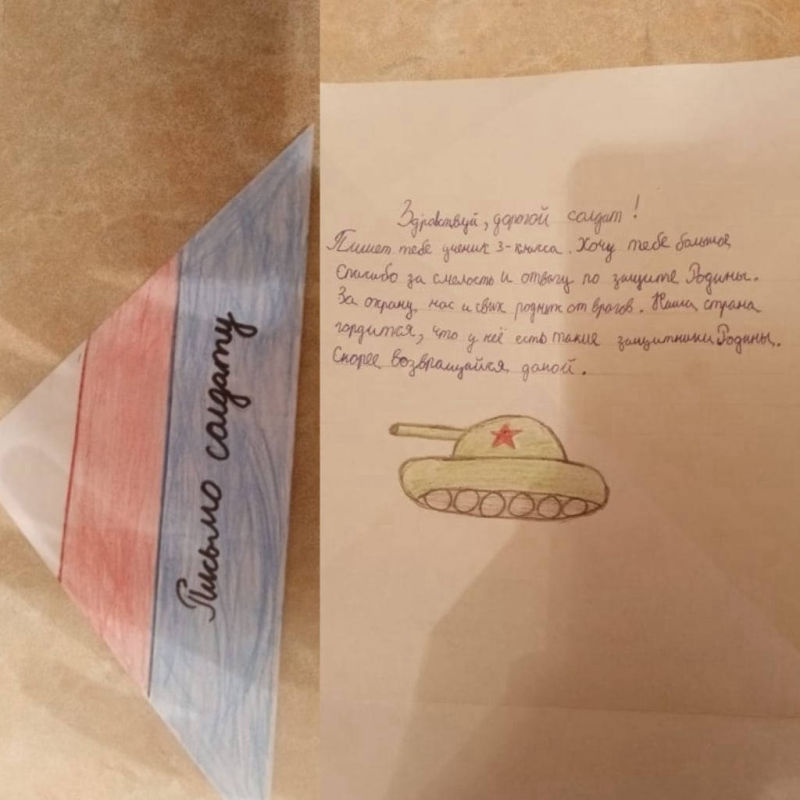 Письмо солдату
Здравствуй, дорогой солдат!
Пишет тебе ученик 3-класса. Хочу тебе большое
Спасибо за смелость и отвагу по защите Родины.
За охрану, нас и свих родных от врагов. Наша страна
гордится, что у неё есть такие защитники Родины.
Скорее возвращайся домой.